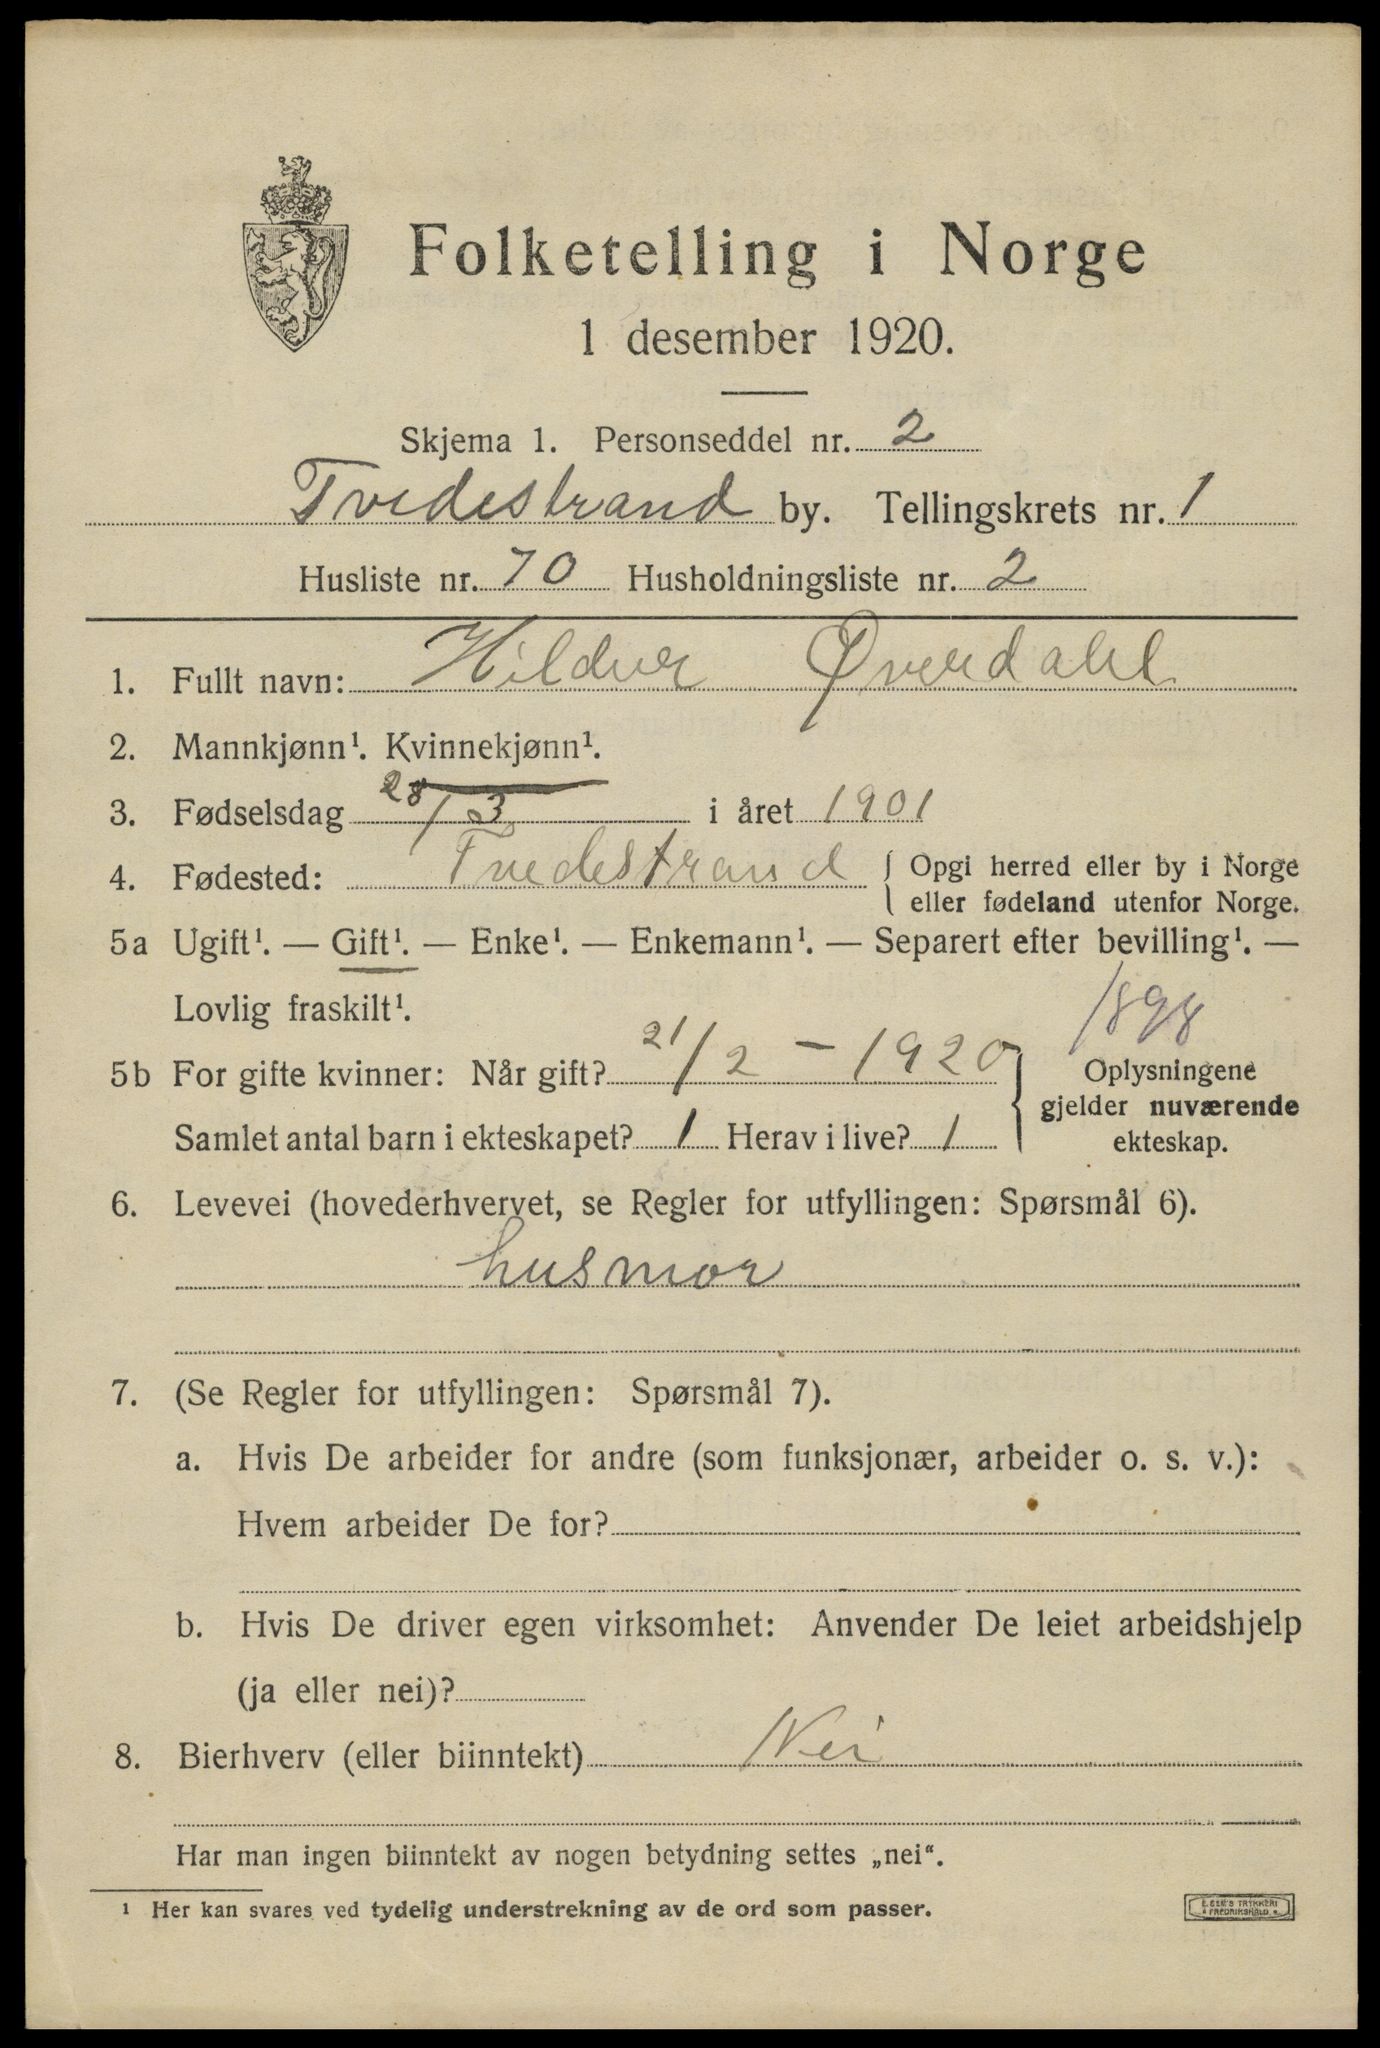 Folketelling i Norge
1 desember 1920.
Skjema 1. Personseddel nr. 2
Tvedestrand by. Tellingskrets nr. 1
Husliste nr. 70 Husholdningsliste nr. 2
1. Fullt navn: Hildur Øverdahl
2. Mannkjønn¹. Kvinnekjønn¹.
3. Fødselsdag 28/3 i året 1901
4. Fødested: Tvedestrand { Opgi herred eller by i Norge
eller fødeland utenfor Norge.
5a Ugift¹. — Gift¹. — Enke¹. — Enkemann¹. — Separert efter bevilling¹. —
Lovlig fraskilt¹.
1898
5b For gifte kvinner: Når gift? 21/2 - 1920
Samlet antal barn i ekteskapet? 1 Herav i live? 1
Oplysningene
gjelder nuværende
ekteskap.
6. Levevei (hovederhvervet, se Regler for utfyllingen: Spørsmål 6).
husmor
7. (Se Regler for utfyllingen: Spørsmål 7).
a. Hvis De arbeider for andre (som funksjonær, arbeider o. s. v.):
Hvem arbeider De for?
b. Hvis De driver egen virksomhet: Anvender De leiet arbeidshjelp
(ja eller nei)?
8. Bierhverv (eller biinntekt) Nei
Har man ingen biinntekt av nogen betydning settes „nei“.
¹ Her kan svares ved tydelig understrekning av de ord som passer.
TRYKKERI
FREDRIKSHALD